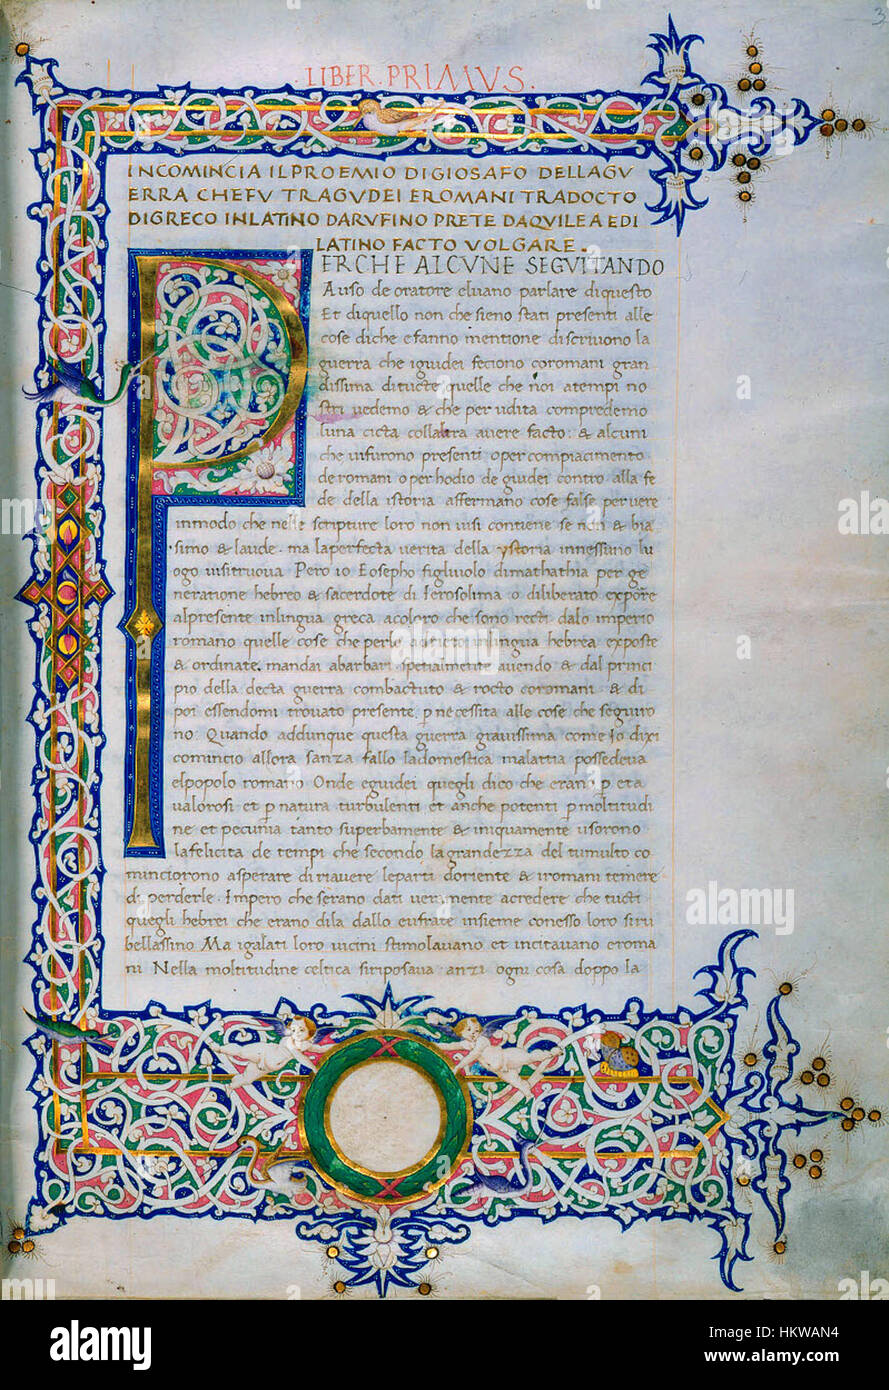 3
·LIBER·PRIMVS·
INCOMINCIA IL PROEMIO DI GIOSAFO DELLA GV
ERRA CHE FV TRA GVDEI E ROMANI TRADOCTO
DI GRECO IN LATINO DA RVFINO PRETE DAQVILEA E DI
LATINO FACTO VOLGARE.
PERCHE ALCVNE SEGVITANDO
Auso de oratore eluano parlare di questo
Et di quello non che sieno stati presenti alle
cose di che e fanno mentione discriuono la
guerra che iguidei feciono co romani gran
dissima di tucte quelle che noi a tempi no
stri uedemo & che per udita compredemo
luna cicta collaltra auere facto: & alcuni
che uifurono presenti o per compiacimento
de romani o per hodio de guidei contro alla fe
de della istoria affermano cose false per uere
in modo che nelle scripture loro non uisi contiene se non & bia
simo & laude. ma la perfecta uerita della ystoria in nessuno lu
ogo uisitruoua. Pero io Eosepho figluiolo di mathathia per ge
neratione hebreo & sacerdote di Ierosolima o diliberato exporre
al presente in lingua greca a coloro che sono recti dalo imperio
romano quelle cose che per lo adietro in lingua hebrea exposte
& ordinate. mandai a barbari spetialmente auendo & dal princi
pio della decta guerra combactuto & rocto co romani & di
poi essendomi trouato presente p necessita alle cose che seguiro
no: Quando addunque questa guerra grauissima come Io dixi
comincio allora sanza fallo la domestica malattia possedeua
el popolo romano Onde e guidei quegli dico che erano p eta
ualorosi et p natura turbulenti et anche potenti p moltitudi
ne et pecunia tanto superbamente & iniquamente usorono
la felicita de tempi che secondo la grandezza del tumulto co
minciorono asperare di riauere le parti doriente & i romani temere
di perderle. Impero che serano dati ueramente a credere che tucti
quegli hebrei che erano di la dallo eufrate insieme con esso loro si ri
bellassino Ma i galati loro uicini stimolauano et incitauano e roma
ni Nella moltitudine celtica si riposaua anzi ogni cosa doppo la
alamy
Image ID: HKWAN4
www.alamy.com